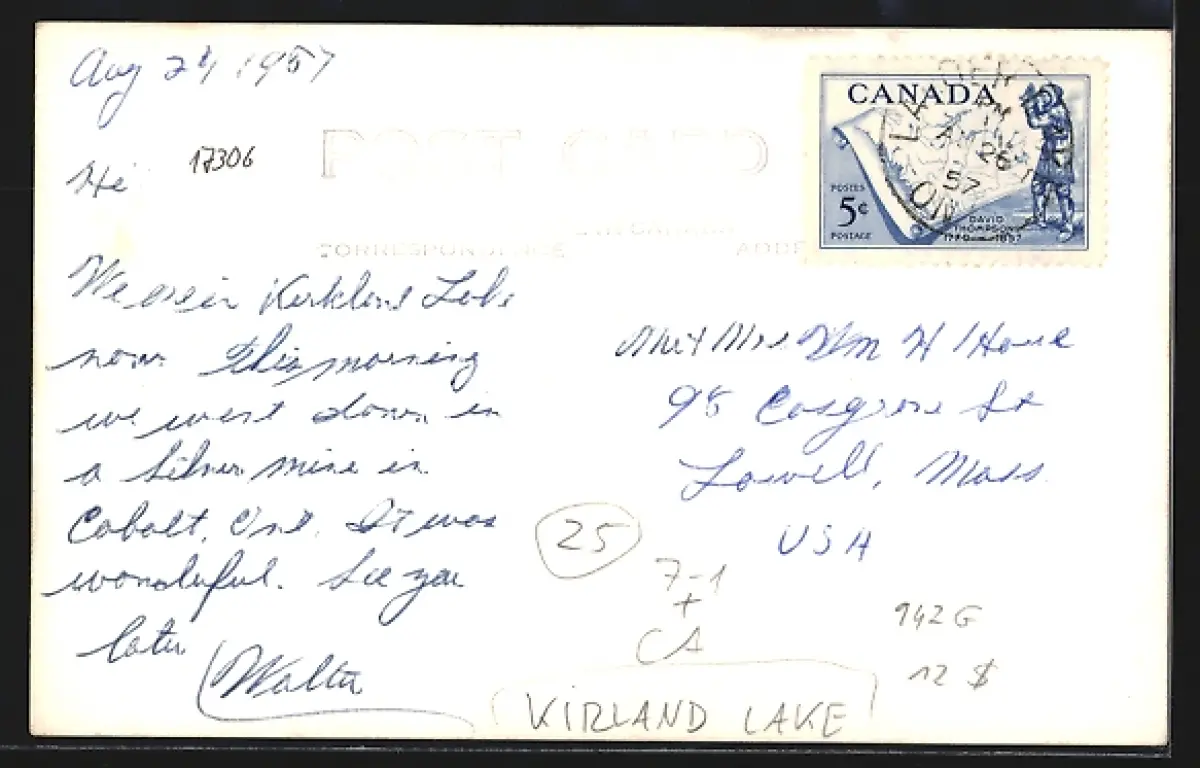 Aug 24, 1957
17306
Hi
POST CARD
CORRESPONDENCE
CANADA
POSTES
5¢
POSTAGE
DAVID
THOMPSON
1770 1857
26
57
ONT
We are in Kirkland Lake
now. This morning
we went down in
a silver mine in
Cobalt, Ont. It was
wonderful. See you
later
Walter
Mr & Mrs Wm H
95 Cosgrove St
Lowell, Mass.
USA
25
7-1
+
CA
942 G
12 $
KIRLAND LAKE